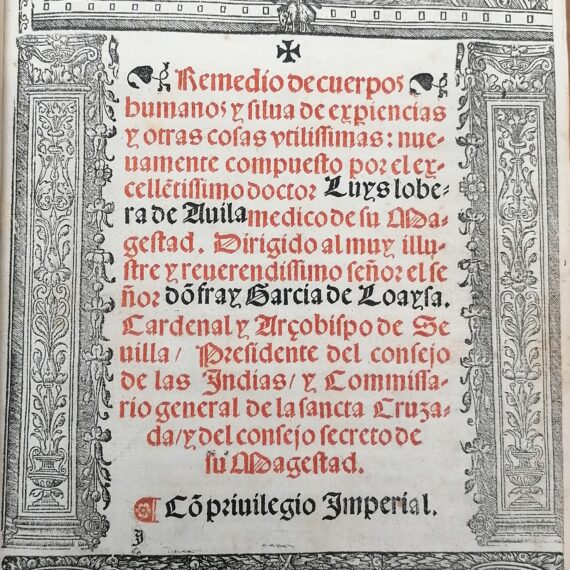 ✠
❧ Remedio de cuerpos ❧
humanos y silua de expiencias
y otras cosas vtilissimas: nue-
uamente compuesto por el ex-
cellẽtissimo doctor Luys lobe-
ra de Auila medico de su Ma-
gestad. Dirigido al muy illu-
stre y reuerendissimo señor el se
ñor dõ fray Garcia de Loaysa.
Cardenal y Arçobispo de Se
uilla/ Presidente del consejo
de las Indias/ y Commissa-
rio general de la sancta Cruza-
da/ y del consejo secreto de
su Magestad.
¶ Cõ priuilegio Imperial.